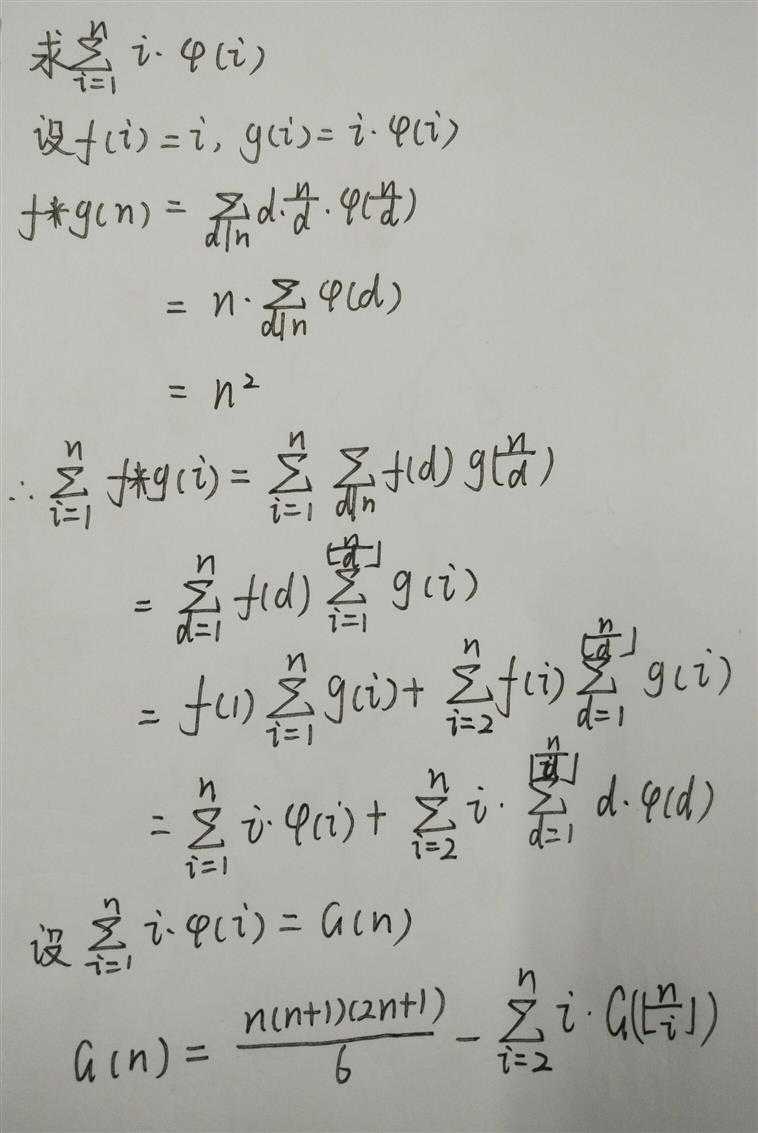 求∑_{i=1}^{n} i·φ(i)
设f(i)=i, g(i)=i·φ(i)
f*g(n) = ∑_{d|n} d·\frac{n}{d}·φ(\frac{n}{d})
= n·∑_{d|n} φ(d)
= n²
∴ ∑_{i=1}^{n} f*g(i) = ∑_{i=1}^{n} ∑_{d|n} f(d) g(\frac{n}{d})
= ∑_{d=1}^{n} f(d) ∑_{i=1}^{⌊\frac{n}{d}⌋} g(i)
= f(1) ∑_{i=1}^{n} g(i) + ∑_{i=2}^{n} f(i) ∑_{d=1}^{⌊\frac{n}{d}⌋} g(i)
= ∑_{i=1}^{n} i·φ(i) + ∑_{i=2}^{n} i· ∑_{d=1}^{⌊\frac{n}{i}⌋} d·φ(d)
设 ∑_{i=1}^{n} i·φ(i) = G(n)
G(n) = \frac{n(n+1)(2n+1)}{6} - ∑_{i=2}^{n} i·G(⌊\frac{n}{i}⌋)